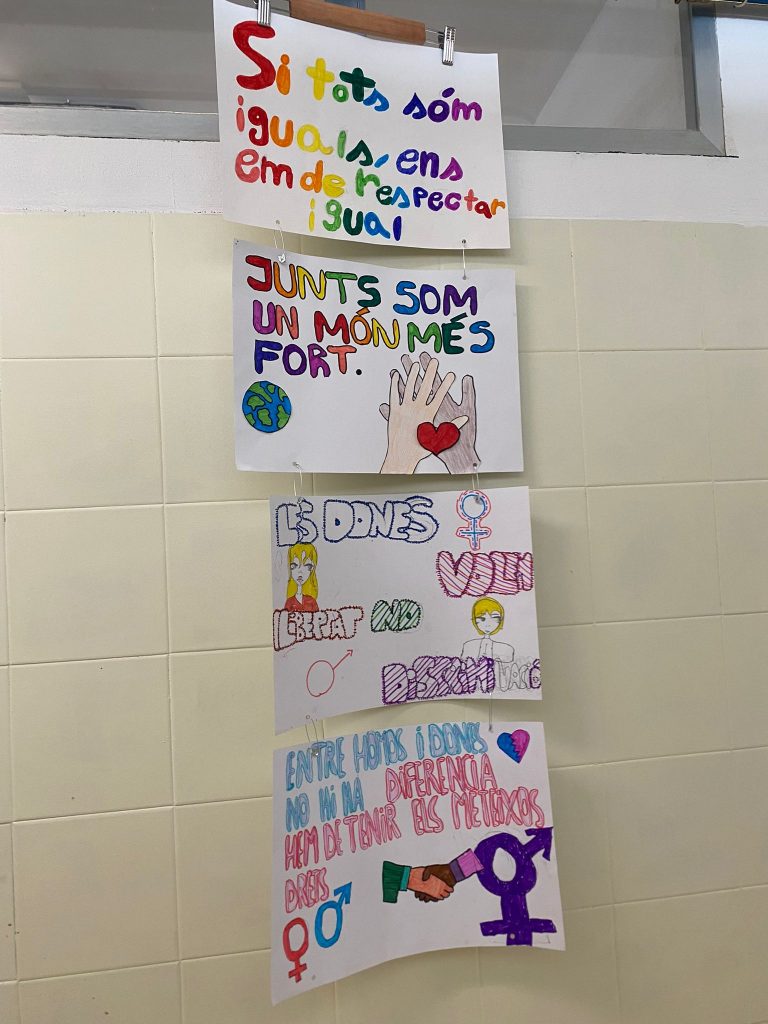 Si tots sóm
iguals, ens
em de respectar
igual
JUNTS SOM
UN MÓN MÉS
FORT.
LES DONES
VOLEN
LLIBERTAT NO
DISCRIMINACIÓ
ENTRE HOMOS I DONES
NO HI HA DIFERENCIA
HEM DE TENIR ELS METEIXOS
DRETS